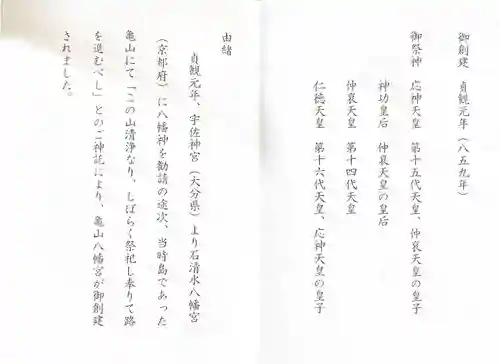 御創建　貞観元年（八五九年）
御祭神　応神天皇　第十五代天皇、仲哀天皇の皇子
神功皇后　仲哀天皇の皇后
仲哀天皇　第十四代天皇
仁徳天皇　第十六代天皇、応神天皇の皇子
由緒
貞観元年、宇佐神宮（大分県）より石清水八幡宮
（京都府）に八幡神を勧請の途次、当時島であった
亀山にて「この山清浄なり、しばらく祭祀し奉りて路
を進むべし」とのご神託により、亀山八幡宮が御創建
されました。